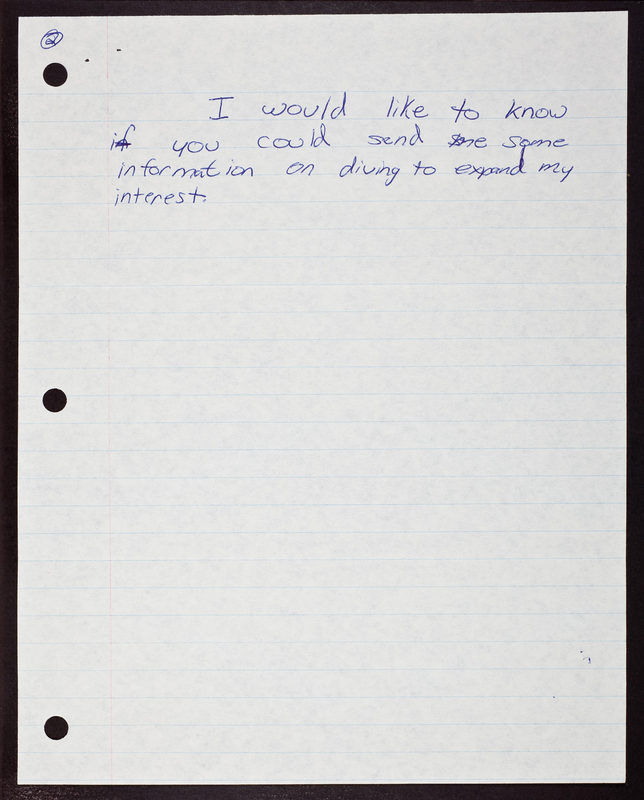 2
I would like to know
if you could send me some
information on diving to expand my
interest.